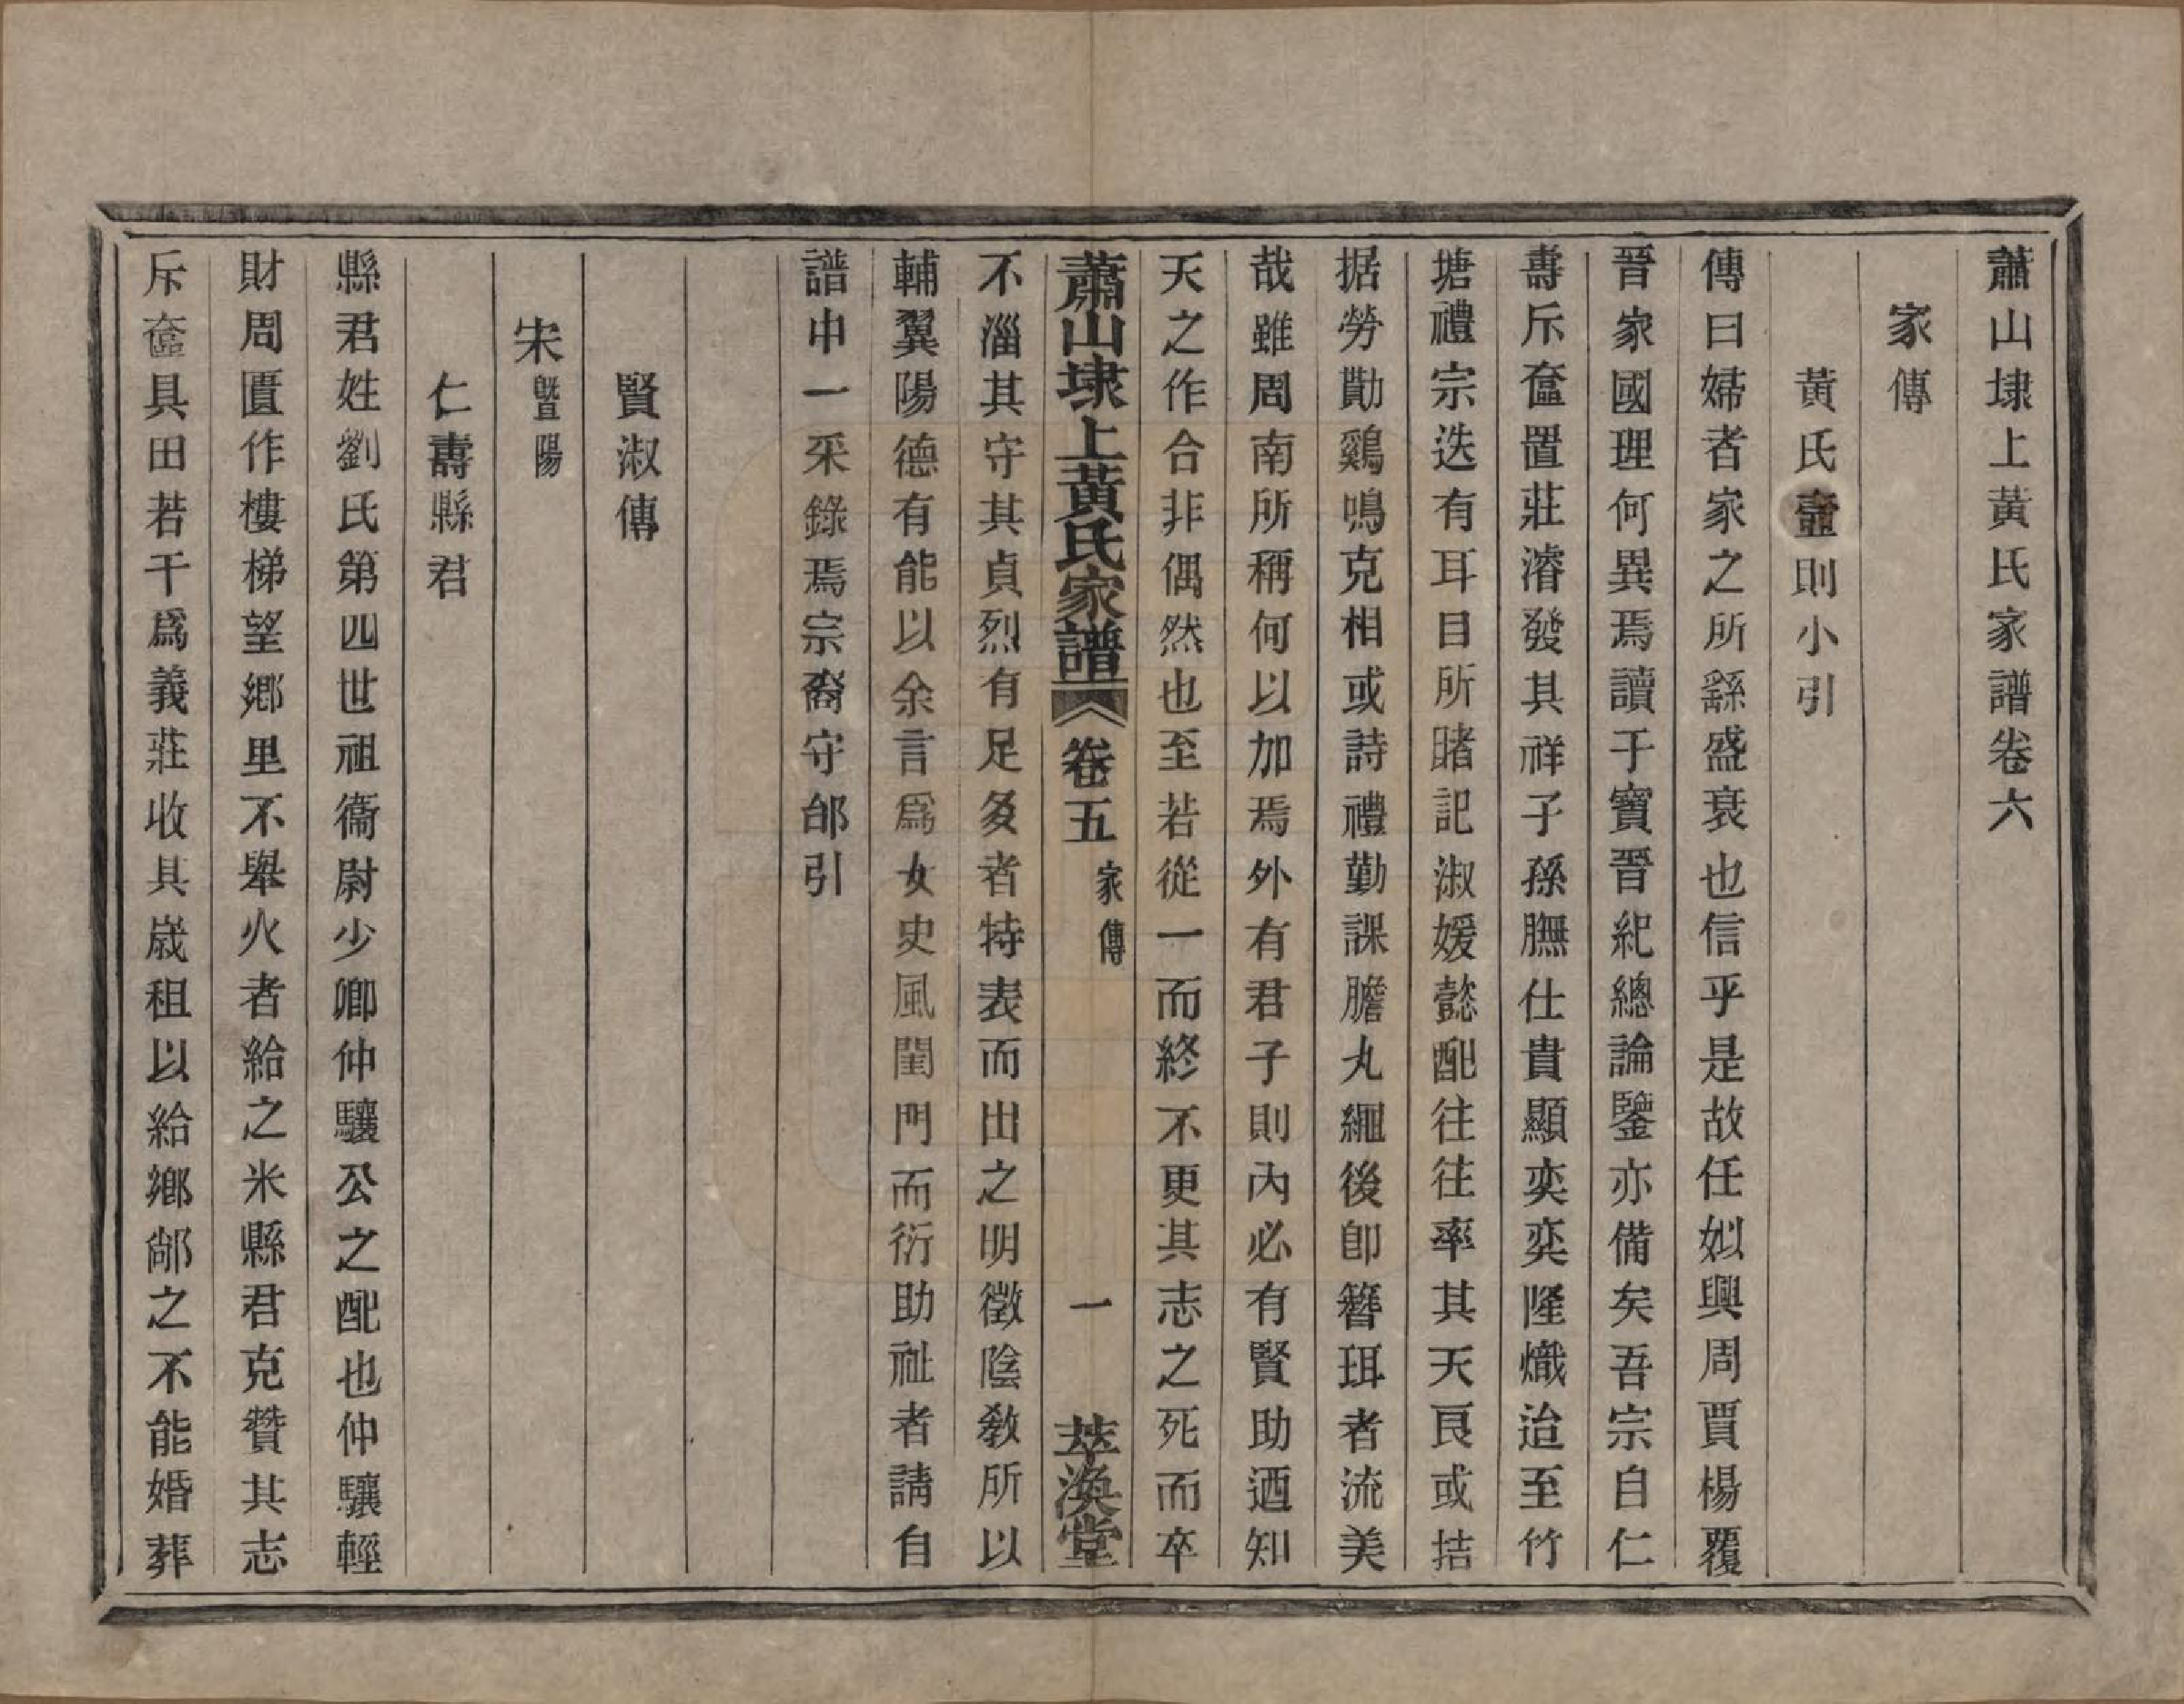 蕭山埭上黃氏家譜卷六
家傳
黃氏壼則小引
傳曰婦者家之所繇盛衰也信乎是故任姒興周賈楊覆
晉家國理何異焉讀于寶晉紀總論鑒亦備矣吾宗自仁
壽斥奩置莊濬發其祥子孫膴仕貴顯奕奕隆熾迨至竹
塘禮宗迭有耳目所睹記淑媛懿配往往率其天良或拮
据勞勩鷄鳴克相或詩禮勤課膽丸繩後卽簪珥者流美
哉雖周南所稱何以加焉外有君子則內必有賢助迺知
天之作合非偶然也至若從一而終不更其志之死而卒
蕭山埭上黃氏家譜 卷五 家傳 一 萃渙堂
不淄其守其貞烈有足多者特表而出之明徵陰敎所以
輔翼陽德有能以余言爲女史風闺門而衍助祉者請自
譜中一采錄焉宗裔守邰引
賢淑傳
宋暨陽
仁壽縣君
縣君姓劉氏第四世祖衞尉少卿仲驤公之配也仲驤輕
財周匱作樓梯望鄉里不舉火者給之米縣君克贊其志
斥奩具田若干爲義莊收具歲租以給鄉鄰之不能婚葬